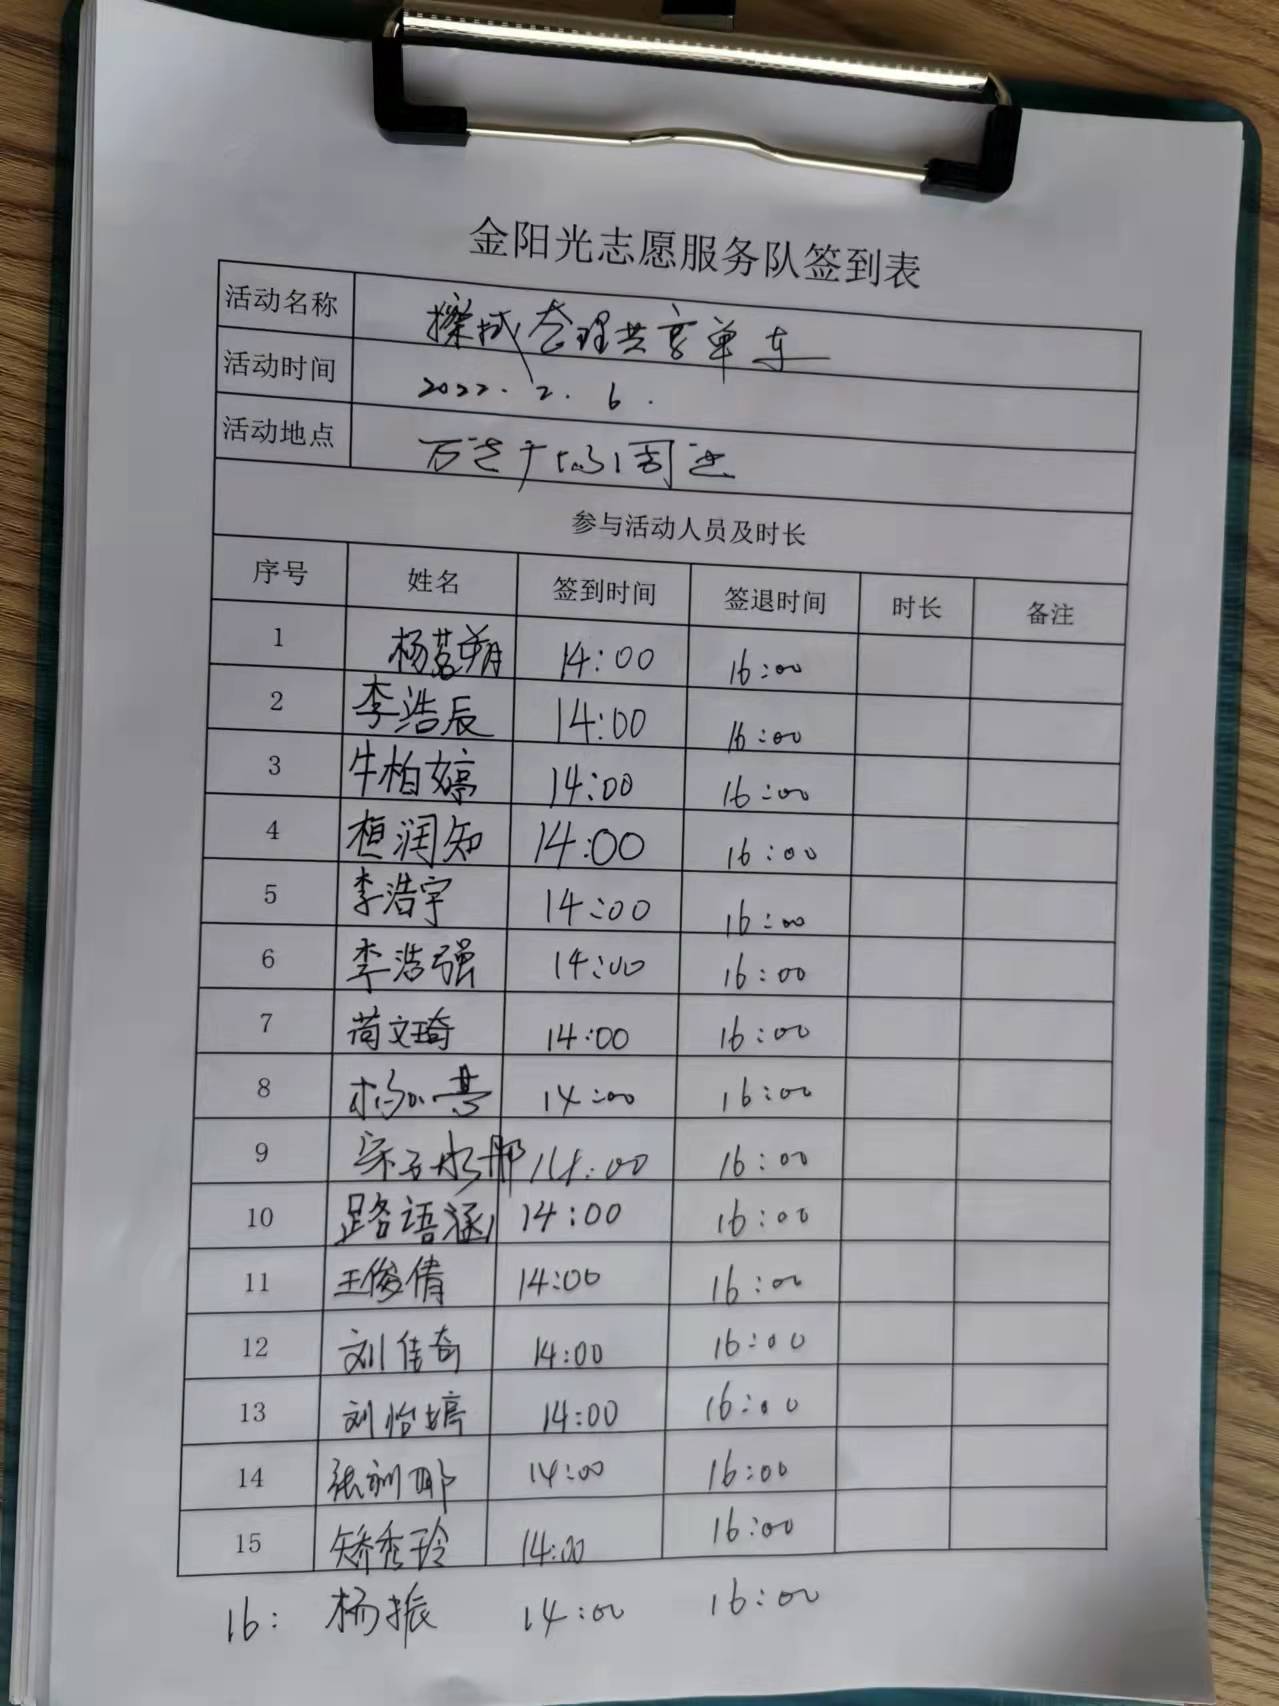 金阳光志愿服务队签到表
活动名称 擦拭整理共享单车
活动时间 2022.2.6.
活动地点 万达广场周边
参与活动人员及时长
序号 姓名 签到时间 签退时间 时长 备注
1 杨茗朔 14:00 16:00
2 李浩辰 14:00 16:00
3 牛柏婷 14:00 16:00
4 桓润知 14:00 16:00
5 李浩宇 14:00 16:00
6 李浩强 14:00 16:00
7 荀文琦 14:00 16:00
8 杨 14:00 16:00
9 14:00 16:00
10 路语涵 14:00 16:00
11 王俊倩 14:00 16:00
12 刘佳奇 14:00 16:00
13 刘怡婷 14:00 16:00
14 张训 14:00 16:00
15 矫秀玲 14:00 16:00
16: 杨振 14:00 16:00